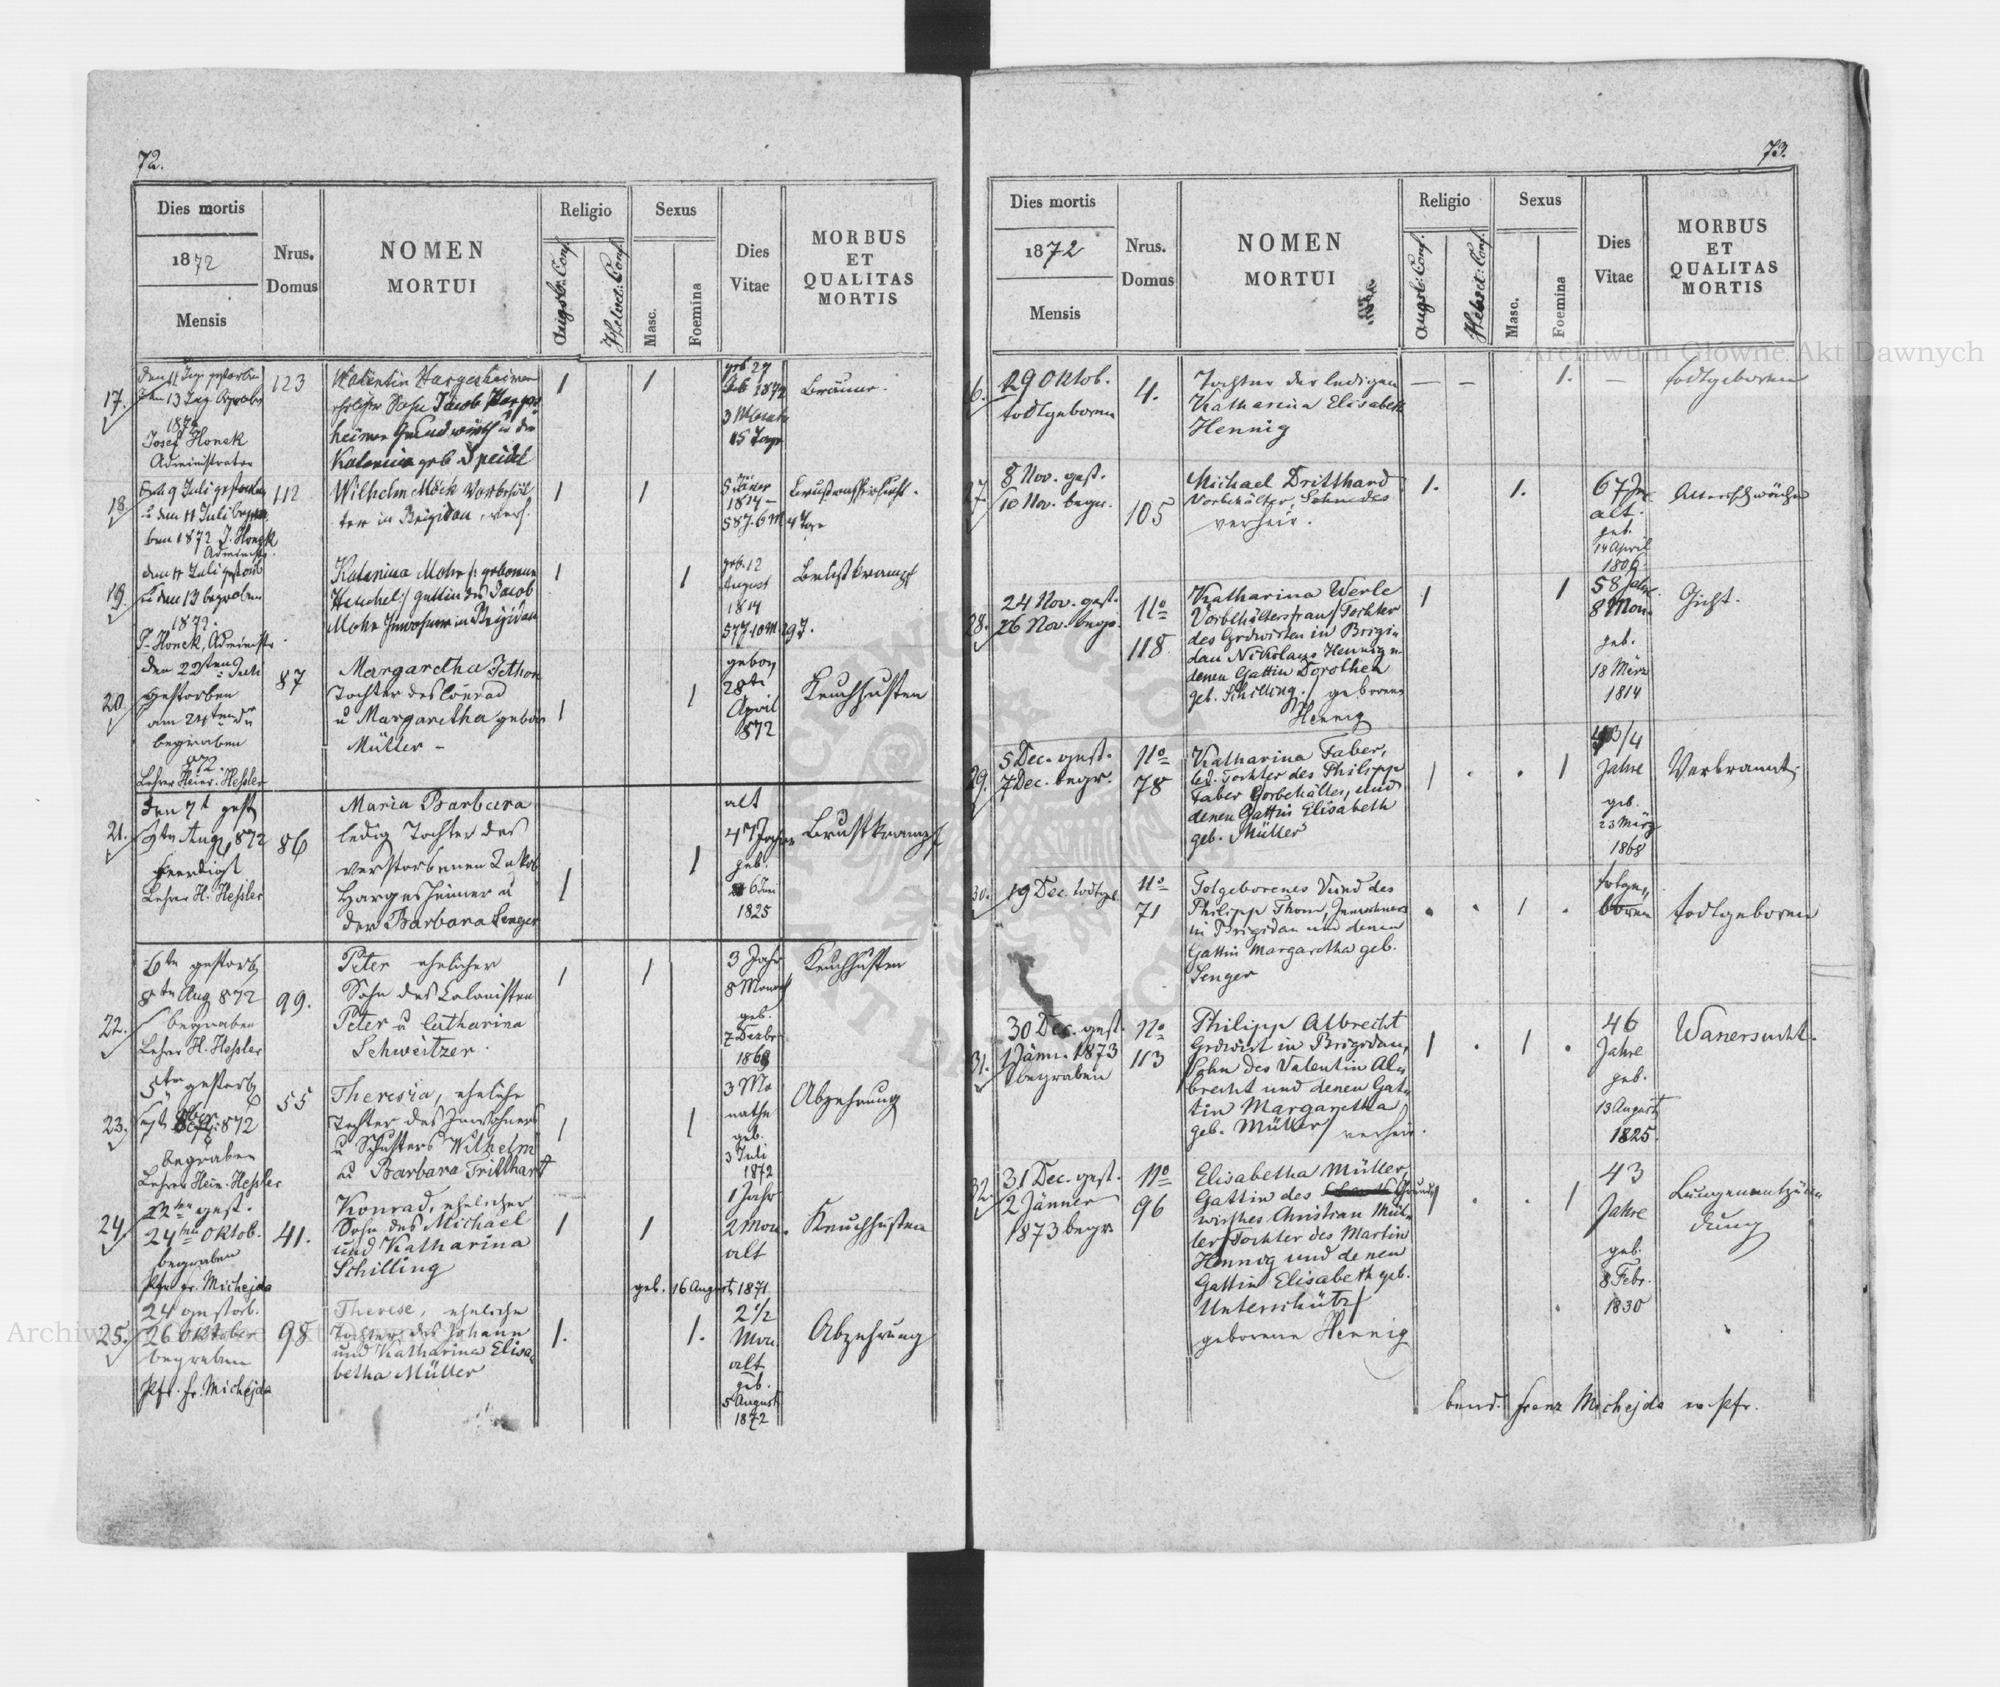 72.
Dies mortis
1872
Mensis
Nrus.
Domus
NOMEN
MORTUI
Religio
Augsb: Conf.
Helvet: Conf.
Sexus
Masc.
Foemina
Dies
Vitae
MORBUS
ET
QUALITAS
MORTIS
17.
1872
Josef Honek
Administrator
123
Valentin Hargesheimer
ehelicher Sohn Jacob Harges
heimer Grundwirth u der
Katarina geb Speidel
1
1
geb 27
1872
3 Monate
15 Tage
Bräune.
18.
den 9 Juli gestorben
u den 11 Juli begra
ben 1872 J. Honek
Administr.
112
Wilhelm Möck Vorbehäl
ter in Brigidau, verh.
1
1
5 Jäner
1814
58 J. 6 M 4 Tage
19.
den 11 Juli gestorb
u den 13 begraben
1872.
J. Honek, Administr.
Katarina Mohr /: geborene
Henchel:/ gattin des Jacob
Mohr Inwohner in Brigidau
1
1
geb. 12
August
1814
57 J. 10 M 29 T.
Brustkrampf
20.
den 22ten Juli
gestorben
am 24ten
begraben
872.
Lehrer Heinr. Hessler
87
Margaretha Jethon
Tochter des Conrad
u Margaretha gebor
Müller -
1
1
gebor
28ti
April
872
Keuchhusten
21.
den 7t gest
9tn Aug 872
beerdigt
Lehrer H. Hessler
86
Maria Barbara
ledig Tochter des
verstorbenen Jakob
Hargesheimer u
der Barbara Senger
1
1
alt
47 Jahre
geb.
6 Juni
1825
Brustkrampf
22.
6tn gestorb
8tn Aug 872
begraben
Lehrer H. Hessler
99.
Peter ehelicher
Sohn des Colonisten
Peter u Catharina
Schweitzer.
1
1
3 Jahr
8 Monat
geb.
7 Decbr
1868
Keuchhusten
23.
5tn gestorb
872
begraben
Lehrer Hein. Hessler
55
Theresia, eheliche
Tochter des Inwohners
u Schusters Wilhelm
u Barbara Tritthart
1
1
3 Mo
nathe
geb.
3 Juli
1872
Abzehrung
24.
22ten gest.
24ten Oktob.
begraben
Pfr. Fr. Michejda
41.
Konrad, ehelicher
Sohn des Michael
und Katharina
Schilling
1
1
1 Jahr
2 Mon.
alt
geb. 16 August 1871
Keuchhusten
25.
24 gestorb.
26 Oktober
begraben
Pfr. Fr. Michejda
98
Therese, eheliche
Tochter des Johann
und Katharina Elisa-
betha Müller
1.
1.
2 1/2
Mon.
alt
geb.
5 August
1872
Abzehrung
73.
Dies mortis
1872
Mensis
Nrus.
Domus
NOMEN
MORTUI
Religio
Augsb: Conf.
Helvet: Conf.
Sexus
Masc.
Foemina
Dies
Vitae
MORBUS
ET
QUALITAS
MORTIS
6.
29 Oktob.
todtgeboren
4.
Tochter der ledigen
Katharina Elisabeth
Hennig
— —
1.
—
todtgeboren
27.
8 Nov. gest.
10 Nov. begr.
105
Michael Dritthard
Vorbehälter,
verheir.
1.
1.
67 Jhr.
alt.
geb.
14 April
Altersschwäche
28.
24 Nov. gest.
26 Nov. begr.
No
118
Katharina Werle
Vorbehältersfrau/ Tochter
des Grdwirten in Brigi-
dau Nikolaus Hennig u.
denen Gattin Dorothea
geb. Schilling./ geborene
Hennig
1
1
58 Jahre
8 Mon.
geb.
18 März
1814
Gicht.
29.
5 Dec. gest.
7 Dec. begr.
No
78
Katharina Faber,
led. Tochter des Philipp
Faber Vorbehälter, und
denen Gattin Elisabeth
geb. Müller
1 . . 1
4 3/4
Jahre
geb.
23 März
1868
Verbrannt.
30.
19 Dec. todtgeb.
No
71
Totgeborenes Kind des
Philipp Thom, Inwohners
in Brigidau und denen
Gattin Margaretha geb.
Senger
. . 1 .
todtge-
boren
todtgeboren
31.
30 Dec. gest.
1 Jänn. 1873
begraben
No
113
Philipp Albrecht
Grdwirt in Brigidau,
Sohn des Valentin Al-
brecht und denen Gat-
tin Margaretha
geb. Müller/ verheir.
1 . 1 .
46
Jahre
geb.
13 August
1825.
Wassersucht.
32.
31 Dec. gest.
2 Jänner
1873 begr.
No
96
Elisabetha Müller,
Gattin des Grund-
wirthes Christian Mül-
ler/ Tochter des Martin
Hennig und denen
Gattin Elisabeth geb.
Unterschütz/
geborene Hennig
1 . . 1
43
Jahre
geb.
8 Febr.
1830
Lungenentzün-
dung
Franz Michejda ev. Pfr.
Archiwum Główne Akt Dawnych
Archiwum Główne Akt Dawnych